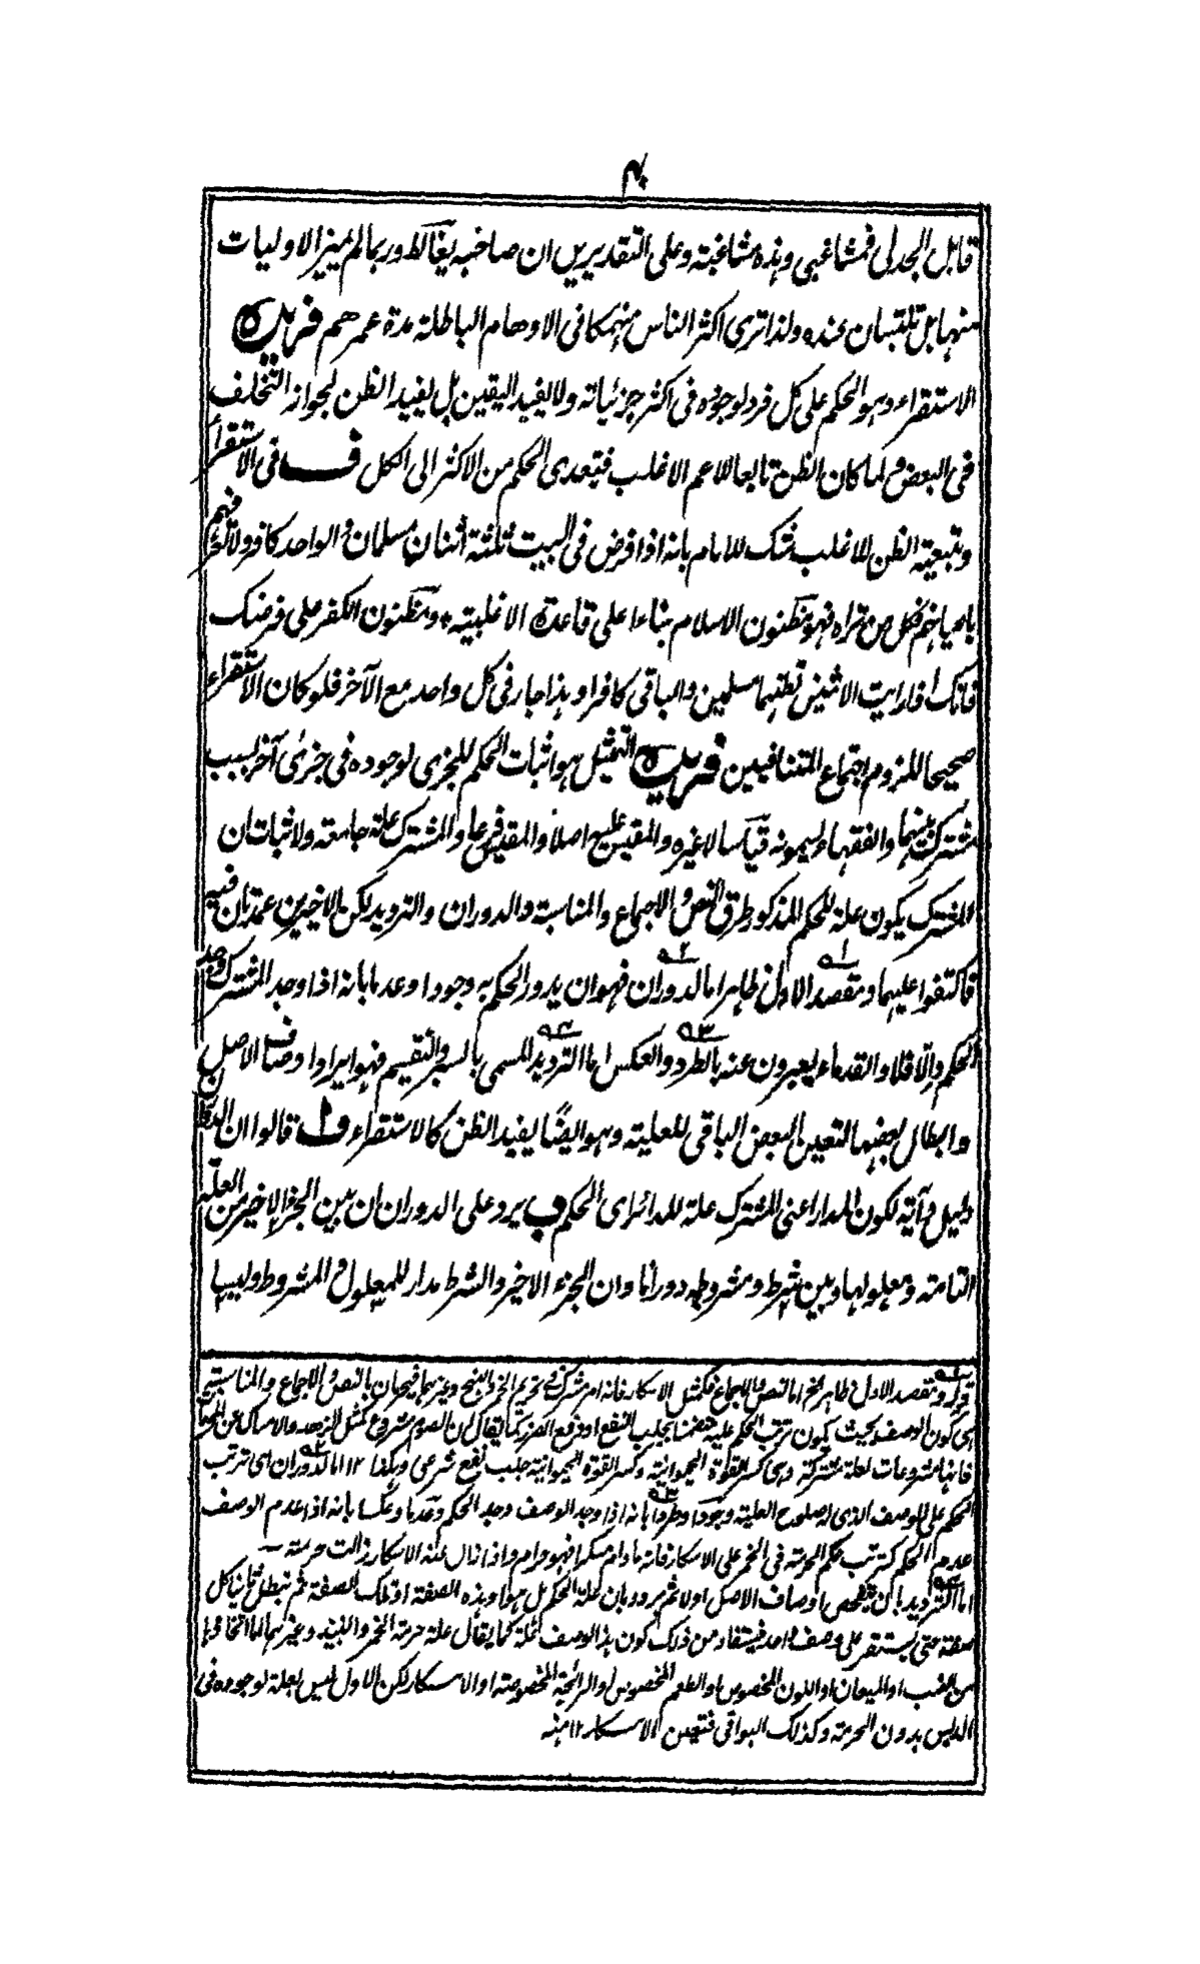 قابل الجدلی فمشاغبی وہذہ مشاغبتہ وعلی التقدیرین ان صاحبہ یغالط وربمالم یمیز الاولیات
منہا بل تلتبسان عندہ ولذا تری اکثر الناس منہمکا فی الاوہام الباطلۃ مدۃ عمرھم فریدۃ
الاستقراء وہو الحکم علی کل فرد لوجودہ فی اکثر جزئیاتہ ولا یفید الیقین بل یفید الظن لجواز التخلف
فی البعض ولما کان الظن تابعا للاعم الاغلب فیتعدی الحکم من الاکثر الی الکل ف فی الاستقراء
وتبعیۃ الظن للاغلب شک للامام بانہ اذا فرض فی البیت ثلثۃ اثنان مسلمان والواحد کافر ولا
باعیانہم فکل من تراہ فہو مظنون الاسلام بناءا علی قاعدۃ الاغلبیۃ ومظنون الکفر علی فرضک
فانک اذا رایت الاثنین تظنہما مسلمین والباقی کافرا وہذا جار فی کل واحد مع الآخر فلو کان الاستقراء
صحیحا للزم اجتماع المتنافیین فریدۃ التمثیل ہو اثبات الحکم للجزی لوجودہ فی جزئی آخر لسبب
مشترک بینہما والفقہاء یسمونہ قیاسا لا غیرہ والمقیس علیہ اصلا والمقیس فرعا والمشترک علۃ جامعۃ ولاثبات ان
المشترک یکون علۃ للحکم المذکور طرق النص والاجماع والمناسبۃ والدوران والتردید لکن الاخیرین عمدتان فیہ
فاکتفوا علیہما ومقصد الاول ظاہر اما الدوران فہو ان یدور الحکم بہ وجودا وعدما بانہ اذا وجد المشترک وجد
الحکم والا فلا والقدماء یعبرون عنہ بالطرد والعکس اما التردید المسمی بالسبر والتقسیم فہو ایراد اوصاف الاصل
وابطال بعضہا لتعین البعض الباقی للعلیۃ وہو ایضا یفید الظن کالاستقراء ف قالوا ان الدوران
دلیل وآیۃ لکون المدار اعنی المشترک علۃ للدائر ای الحکم ف یرد علی الدوران ان بین الجزء الاخیر من العلۃ
التامۃ ومعلولہا وبین شرط ومشروطہ دورانا وان الجزء الاخیر والشرط مدار للمعلول والمشروط ولیسا
قولہ ومقصد الاول ظاہر الخ اما النص والاجماع فکمثل الاسکار فانہ امر مشترک فی تحریم الخمر والبنج وغیرہما فیحرمان بالنص والاجماع والمناسبۃ
ہی کون الوصف بحیث یکون ترتب الحکم علیہ متضمنا لجلب النفع او دفع الضرر کما یقال ان الصوم مشروع کمثل الزہد والامساک عن
فانہا مشروعات لعلۃ مشترکۃ وہی کسر القوۃ الحیوانیۃ وکسر القوۃ الحیوانیۃ جلب نفع شرعی وہکذا ۱۲ اما الدوران ای ترتب
الحکم علی الوصف الذی لہ صلوح العلیۃ وجودا وطردا بانہ اذا وجد الوصف وجد الحکم وعدما وعکسا بانہ اذا عدم الوصف
عدم الحکم کترتب حکم الحرمۃ فی الخمر علی الاسکار فانہ ما دام مسکرا فہو حرام واذا زال عنہ الاسکار زالت حرمتہ
اما التردید بان یتفحص اوصاف الاصل اولا ثم یردد بان علۃ الحکم ہل ہو اوہذہ الصفۃ او تلک الصفۃ ثم تبطل ثانیا کل
صفۃ حتی یستقر علی وصف واحد فیستفاد من ذلک کون ہذا الوصف علۃ کما یقال علۃ حرمۃ الخمر والنبیذ وغیرہما اما اتخاذہا
من العنب او المیعان او اللون المخصوص او الطعم المخصوص او الرائحۃ المخصوصۃ او الاسکار لکن الاول لیس بعلۃ لوجودہ فی
الدبس بدون الحرمۃ وکذلک البواقی فتعین الاسکار ۱۲ منہ